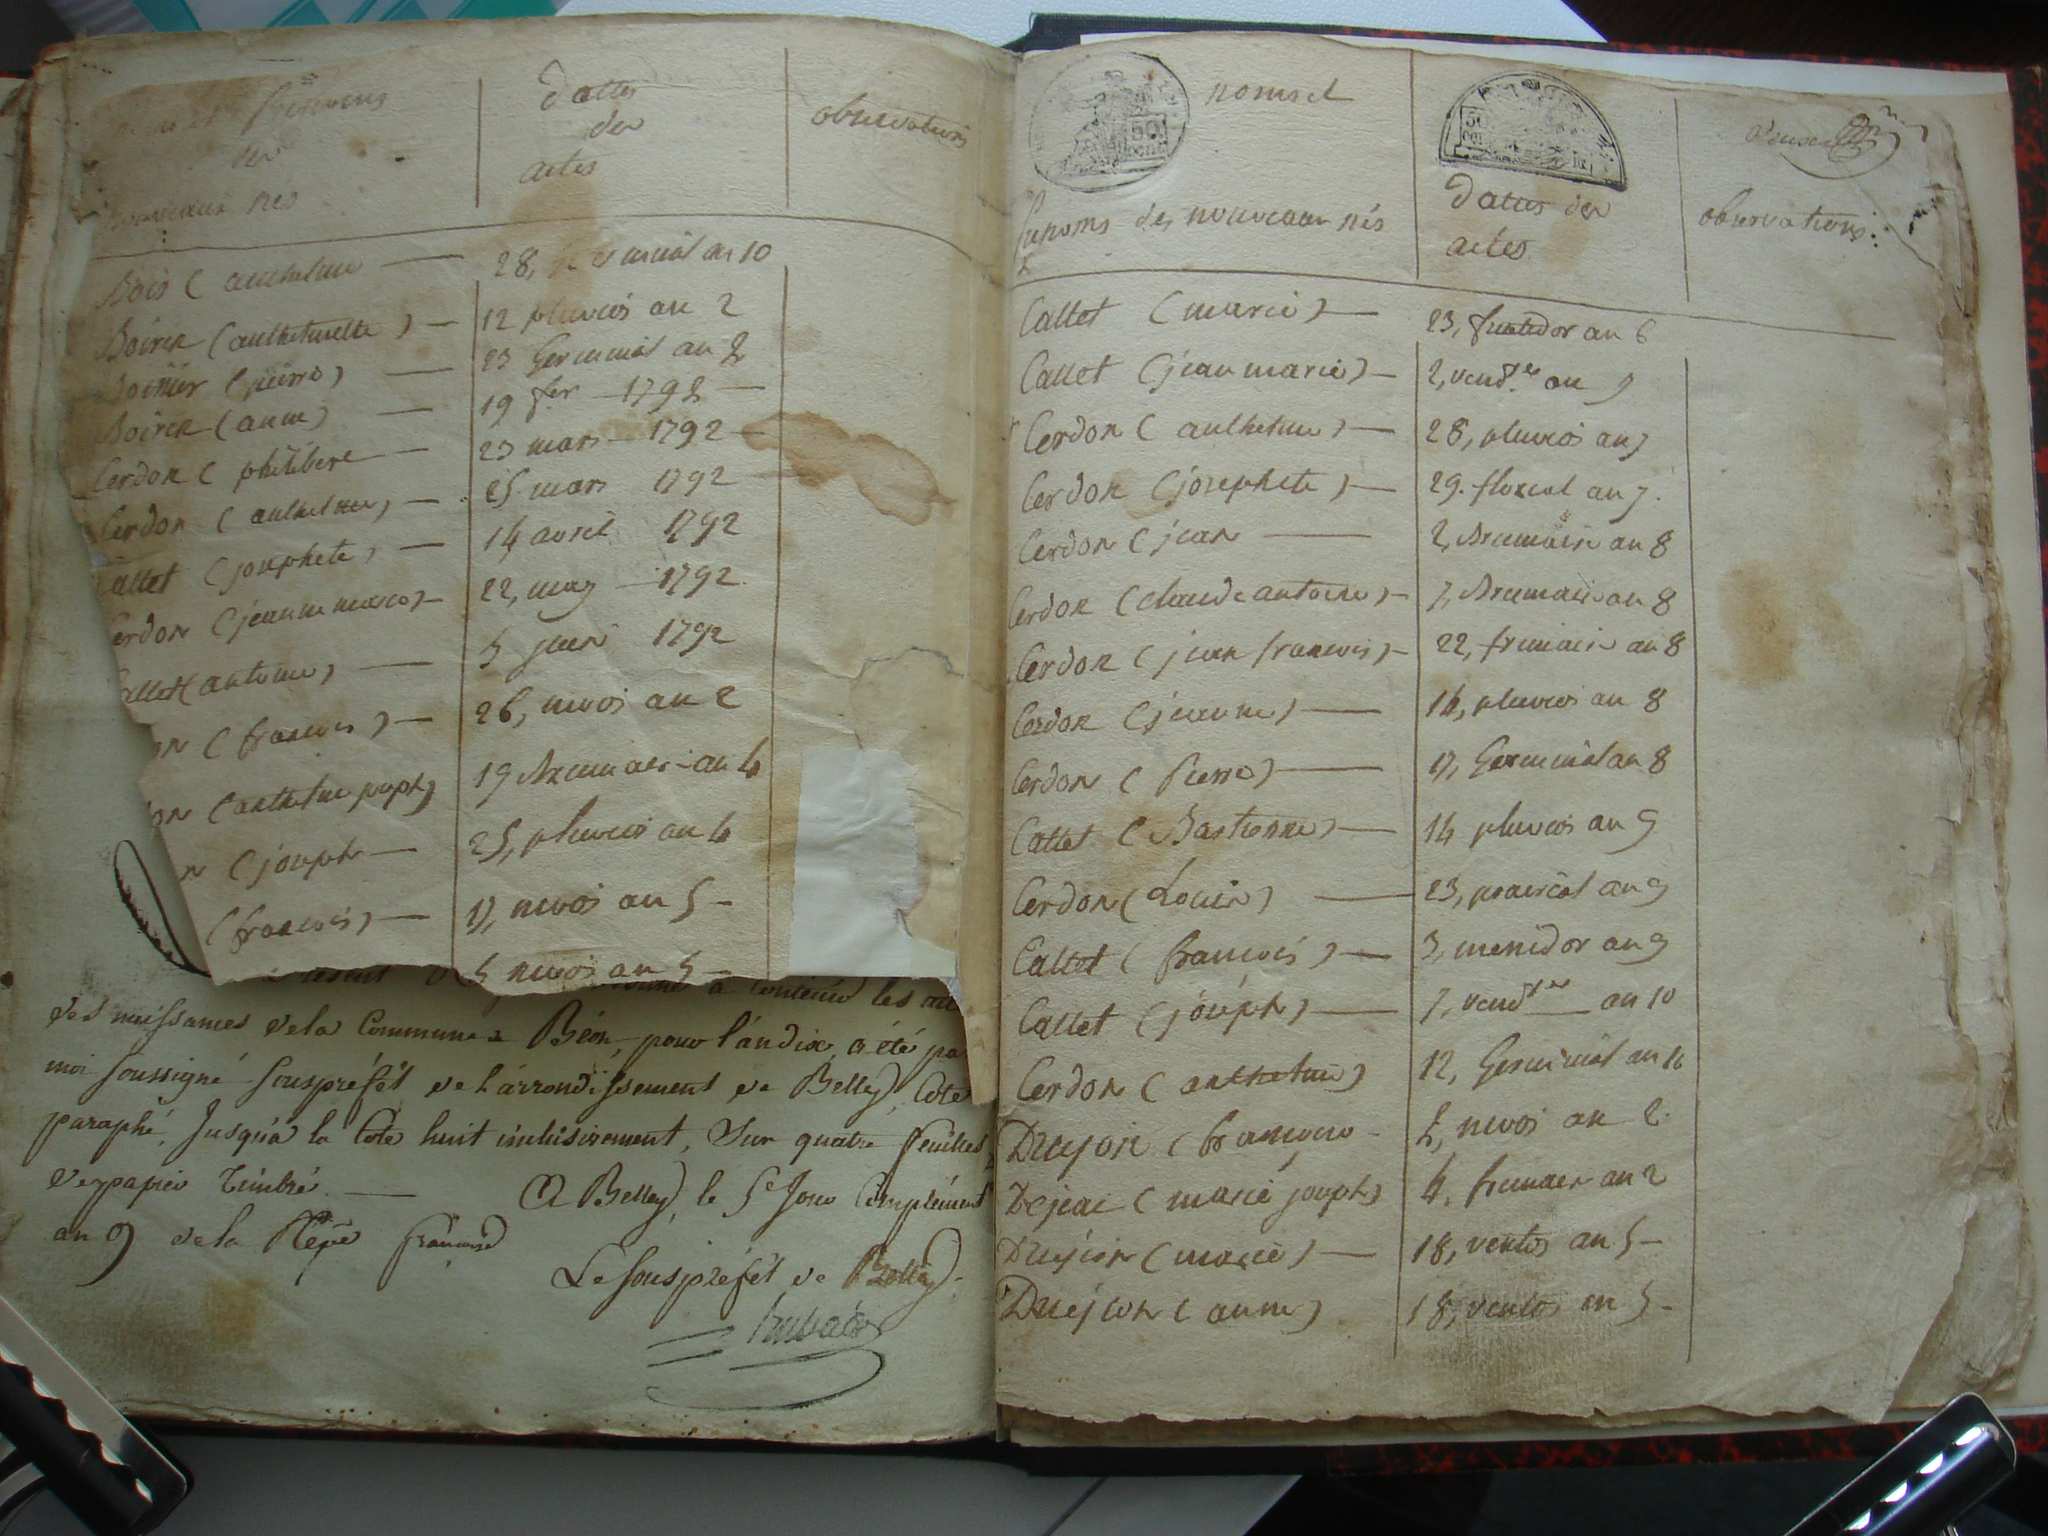 prenoms
des
nouveaux nés
dattes
des
actes
observations
Bois (anthelme — 28, germinal an 10
Boiren (anthelmette) — 12 pluvios an 2
(pierre) — 23 Germinal an 2
Boiren (anne) — 19 fer — 1792 —
Cerdon (philibere — 23 mars — 1792 —
Cerdon (anthelme) — 25 mars 1792
Callet (josephete) — 14 avril 1792
erdon (jeanne marie) — 22, may — 1792
allet (antoine) — 5 juin 1792
on (francois) — 26, nivos an 2
on (anthelme joseph) 19 Brumaire an 4
n (joseph — 25, pluvios an 4
(francois) — 17, nivos an 5 —
5 nivos an 5 —
a contenir les
des naissances de la Commune de Béon, pour l'an dix, a été pa
moi soussigné souspréfét de l'arrondissement de Belley, Coté
paraphé, Jusqu'à la Cote huit inclusivement, Sur quatre feuilles
de papier Timbré. — A Belley, le 5e Jour Complément
an 9 de la Répe française
Le souspréfét de Belley.
noms et
prenoms des nouveaux nés
50
50
dattes des
actes
observations
Callet (marie) — 23, fructidor an 6
Callet (jean marie) — 2, vendre an 7
Cerdon (anthelme) — 28, pluvios an 7
Cerdon (josephete) — 29. floreal an 7.
Cerdon (jean — 2, Brumaire an 8
Cerdon (claude antoine) — 7, Brumaire an 8
Cerdon (jean francois) — 22, frimaire an 8
Cerdon (jeanne) — 14, pluvios an 8
Cerdon (Pierre) — 17, Germinal an 8
Callet (Bastienne) — 14 pluvios an 9
Cerdon (Louise) — 23, prairial an 9
Callet (francois) — 3, messidor an 9
Callet (joseph) — 7, vendre — an 10
Cerdon (anthelme) 12, Germinal an 10
Drujon (francois — 2, nivos an 2.
Dejeai (marie joseph) 4, frimaire an 2
Drujon (marie) — 18, ventos an 5 —
Drujon (anne) 18, ventos an 5 —